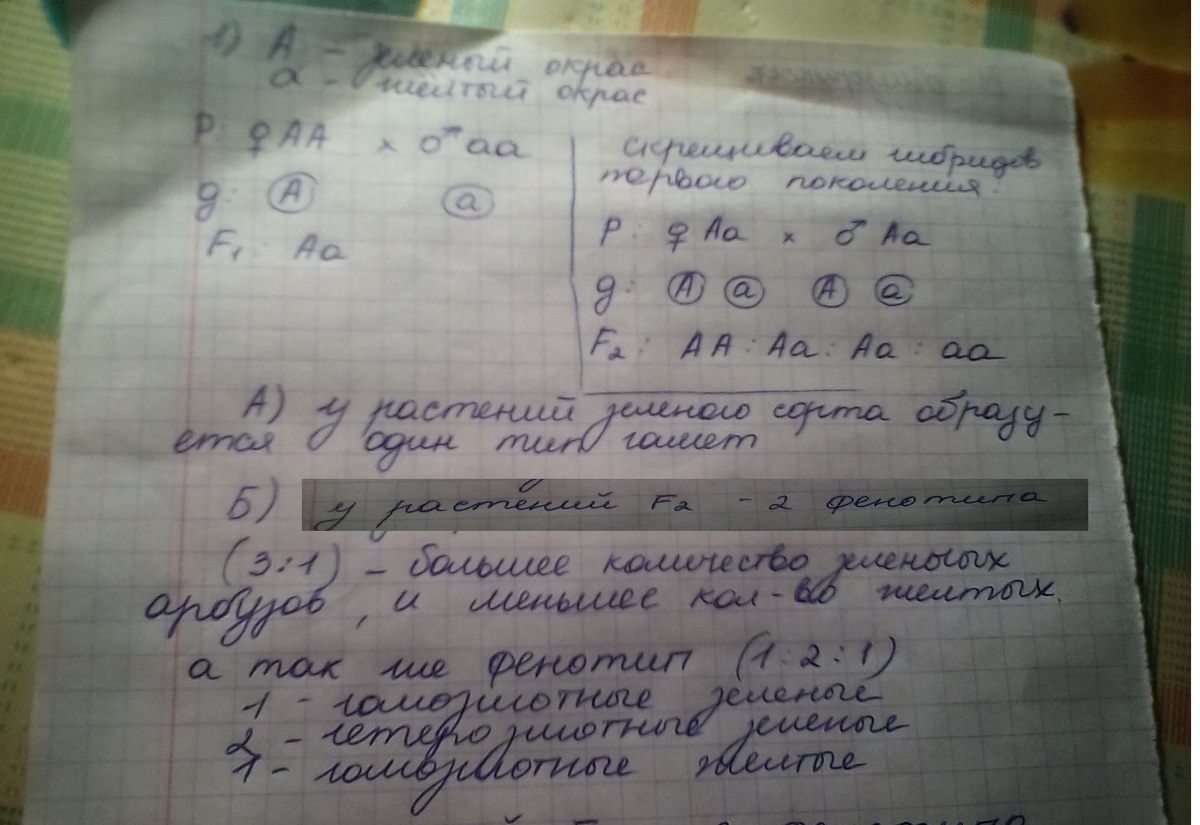 1) А – зеленый окрас
а – жёлтый окрас
Р: ♀ АА × ♂ аа
g: А а
F₁: Аа
скрещиваем гибридов
первого поколения:
Р: ♀ Аа × ♂ Аа
g: А а А а
F₂: АА : Аа : Аа : аа
А) у растений зеленого сорта образу-
ется один тип гамет
Б) у растений F₂ – 2 фенотипа
(3:1) – большее количество зеленых
арбузов, и меньшее кол-во желтых.
а так же фенотип (1:2:1)
1 – гомозиготные зеленые
2 – гетерозиготные зеленые
1 – гомозиготные желтые